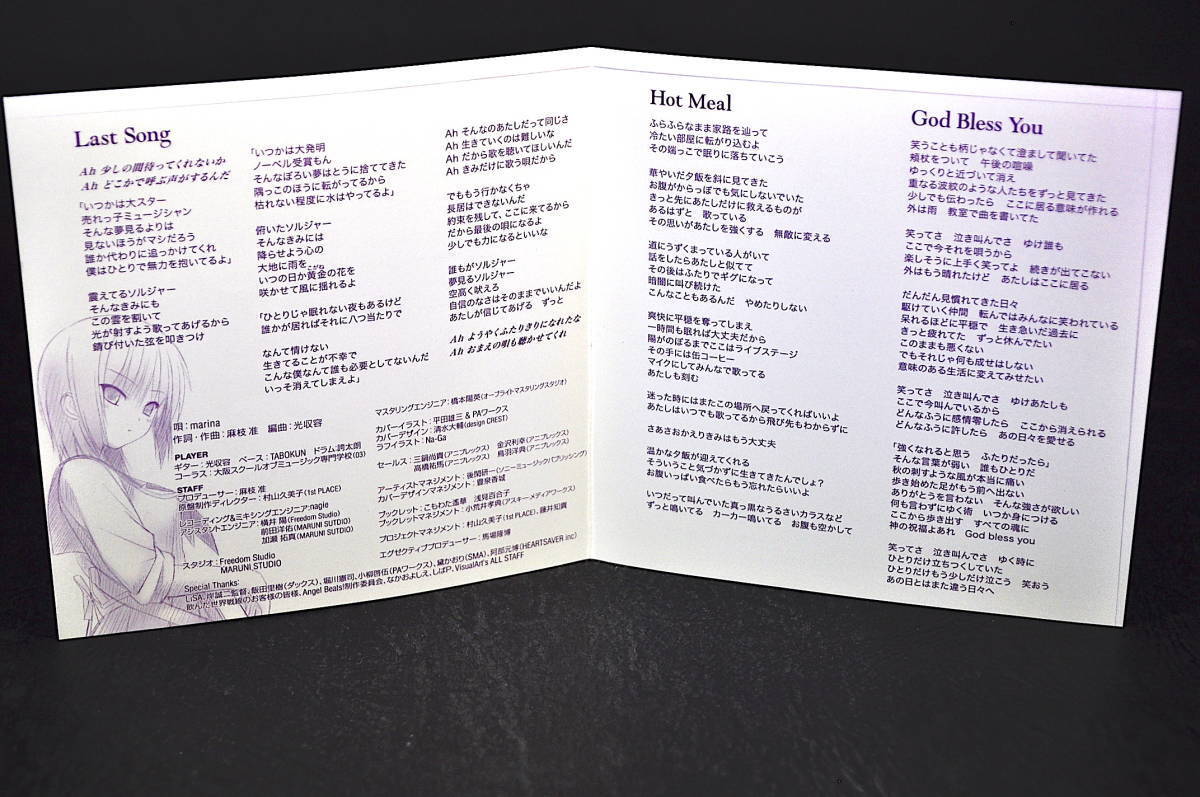 Last Song
Ah 少しの間待ってくれないか
Ah どこかで呼ぶ声がするんだ
「いつかは大スター
売れっ子ミュージシャン
そんな夢見るよりは
見ないほうがマシだろう
誰か代わりに追っかけてくれ
僕はひとりで無力を抱いてるよ」
震えてるソルジャー
そんなきみにも
この雲を割いて
光が射すよう歌ってあげるから
錆び付いた弦を叩きつけ
「いつかは大発明
ノーベル受賞もん
そんなぼろい夢はとうに捨ててきた
隅っこのほうに転がってるから
枯れない程度に水はやってるよ」
俯いたソルジャー
そんなきみには
降らせよう心の
大地に雨を
いつの日か黄金の花を
こがね
咲かせて風に揺れるよ
「ひとりじゃ眠れない夜もあるけど
誰かが居ればそれに八つ当たりで
なんて情けない
生きてることが不幸で
こんな僕なんて誰も必要としてないんだ
いっそ消えてしまえよ」
Ah そんなのあたしだって同じさ
Ah 生きていくのは難しいな
Ah だから歌を聴いてほしいんだ
Ah きみだけに歌う唄だから
でももう行かなくちゃ
長居はできないんだ
約束を残して、ここに来てるから
だから最後の唄になるよ
少しでも力になるといいな
誰もがソルジャー
夢見るソルジャー
空高く吠えろ
自信のなさはそのままでいいんだよ
あたしが信じてあげる ずっと
Ah ようやくふたりきりになれたな
Ah おまえの唄も聴かせてくれ
唄：marina
作詞・作曲：麻枝 准 編曲：光収容
PLAYER
ギター：光収容 ベース：TABOKUN ドラム：誇太朗
コーラス：大阪スクールオブミュージック専門学校(03)
STAFF
プロデューサー：麻枝 准
原盤制作ディレクター：村山久美子(1st PLACE)
レコーディング&ミキシングエンジニア：nagie
アシスタントエンジニア：横井 陽(Freedom Studio)
前田洋佑(MARUNI SUTDIO)
加瀬 拓真(MARUNI STUDIO)
スタジオ：Freedom Studio
MARUNI STUDIO
マスタリングエンジニア：橋本陽英(オーブライトマスタリングスタジオ)
カバーイラスト：平田雄三 & PAワークス
カバーデザイン：清水大輔(design CREST)
ラフイラスト：Na-Ga
セールス：三鍋尚貴(アニプレックス) 金沢利幸(アニプレックス)
高橋祐馬(アニプレックス) 鳥羽洋典(アニプレックス)
アーティストマネジメント：後関研一(ソニーミュージックパブリッシング)
カバーデザインマネジメント：豊泉香城
ブックレット：こもわた遙華 浅見百合子
ブックレットマネジメント：小荒井孝典(アスキーメディアワークス)
プロジェクトマネジメント：村山久美子(1st PLACE)、藤井知貴
エグゼクティブプロデューサー：馬場隆博
Special Thanks:
LiSA、岸誠二監督、飯田里樹(ダックス)、堀川憲司、小柳啓伍(PAワークス)、黛かおり(SMA)、阿部元博(HEARTSAVER inc)
飲んだ世界戦線のお客様の皆様、Angel Beats!制作委員会、なかおよしえ、しばP、VisualArt's ALL STAFF
Hot Meal
ふらふらなまま家路を辿って
冷たい部屋に転がり込むよ
その端っこで眠りに落ちていこう
華やいだ夕飯を斜に見てきた
お腹がからっぽでも気にしないでいた
きっと先にあたしだけに救えるものが
あるはずと 歌っている
その思いがあたしを強くする 無敵に変える
道にうずくまっている人がいて
話をしたらあたしと似てて
その後はふたりでギグになって
暗闇に叫び続けた
こんなこともあるんだ やめたりしない
爽快に平穏を奪ってしまえ
一時間も眠れば大丈夫だから
陽がのぼるまでここはライブステージ
その手には缶コーヒー
マイクにしてみんなで歌ってる
あたしも刻む
迷った時にはまたこの場所へ戻ってくればいいよ
あたしはいつでも歌ってるから飛び先もわからずに
さあさおかえりきみはもう大丈夫
温かな夕飯が迎えてくれる
そういうこと気づかずに生きてきたんでしょ？
お腹いっぱい食べたらもう忘れたらいいよ
いつだって叫んでいた真っ黒なうるさいカラスなど
ずっと鳴いてる カーカー鳴いてる お腹も空かして
God Bless You
笑うことも柄じゃなくて澄まして聞いてた
頬杖をついて 午後の喧噪
ゆっくりと近づいて消え
重なる波紋のような人たちをずっと見てきた
少しでも伝わったら ここに居る意味が作れる
外は雨 教室で曲を書いてた
笑ってさ 泣き叫んでさ ゆけ誰も
ここで今それを唄うから
楽しそうに上手く笑ってよ 続きが出てこない
外はもう晴れたけど あたしはここに居る
だんだん見慣れてきた日々
駆けていく仲間 転んではみんなに笑われている
呆れるほどに平穏で 生き急いだ過去に
きっと疲れてた ずっと休んでたい
このままも悪くない
でもそれじゃ何も成せはしない
意味のある生活に変えてみせたい
笑ってさ 泣き叫んでさ ゆけあたしも
ここで今叫んでいるから
どんなふうに感情零したら ここから消えられる
どんなふうに許したら あの日々を愛せる
「強くなれると思う ふたりだったら」
そんな言葉が弱い 誰もひとりだ
秋の刺すような風が本当に痛い
歩き始めた足がもう前へ出ない
ありがとうを言わない そんな強さが欲しい
何も言わずにゆく術 いつか身につける
ここから歩き出す すべての魂に
神の祝福よあれ God bless you
笑ってさ 泣き叫んでさ ゆく時に
ひとりだけ立ちつくしていた
ひとりだけもう少しだけ泣こう 笑おう
あの日とはまた違う日々へ